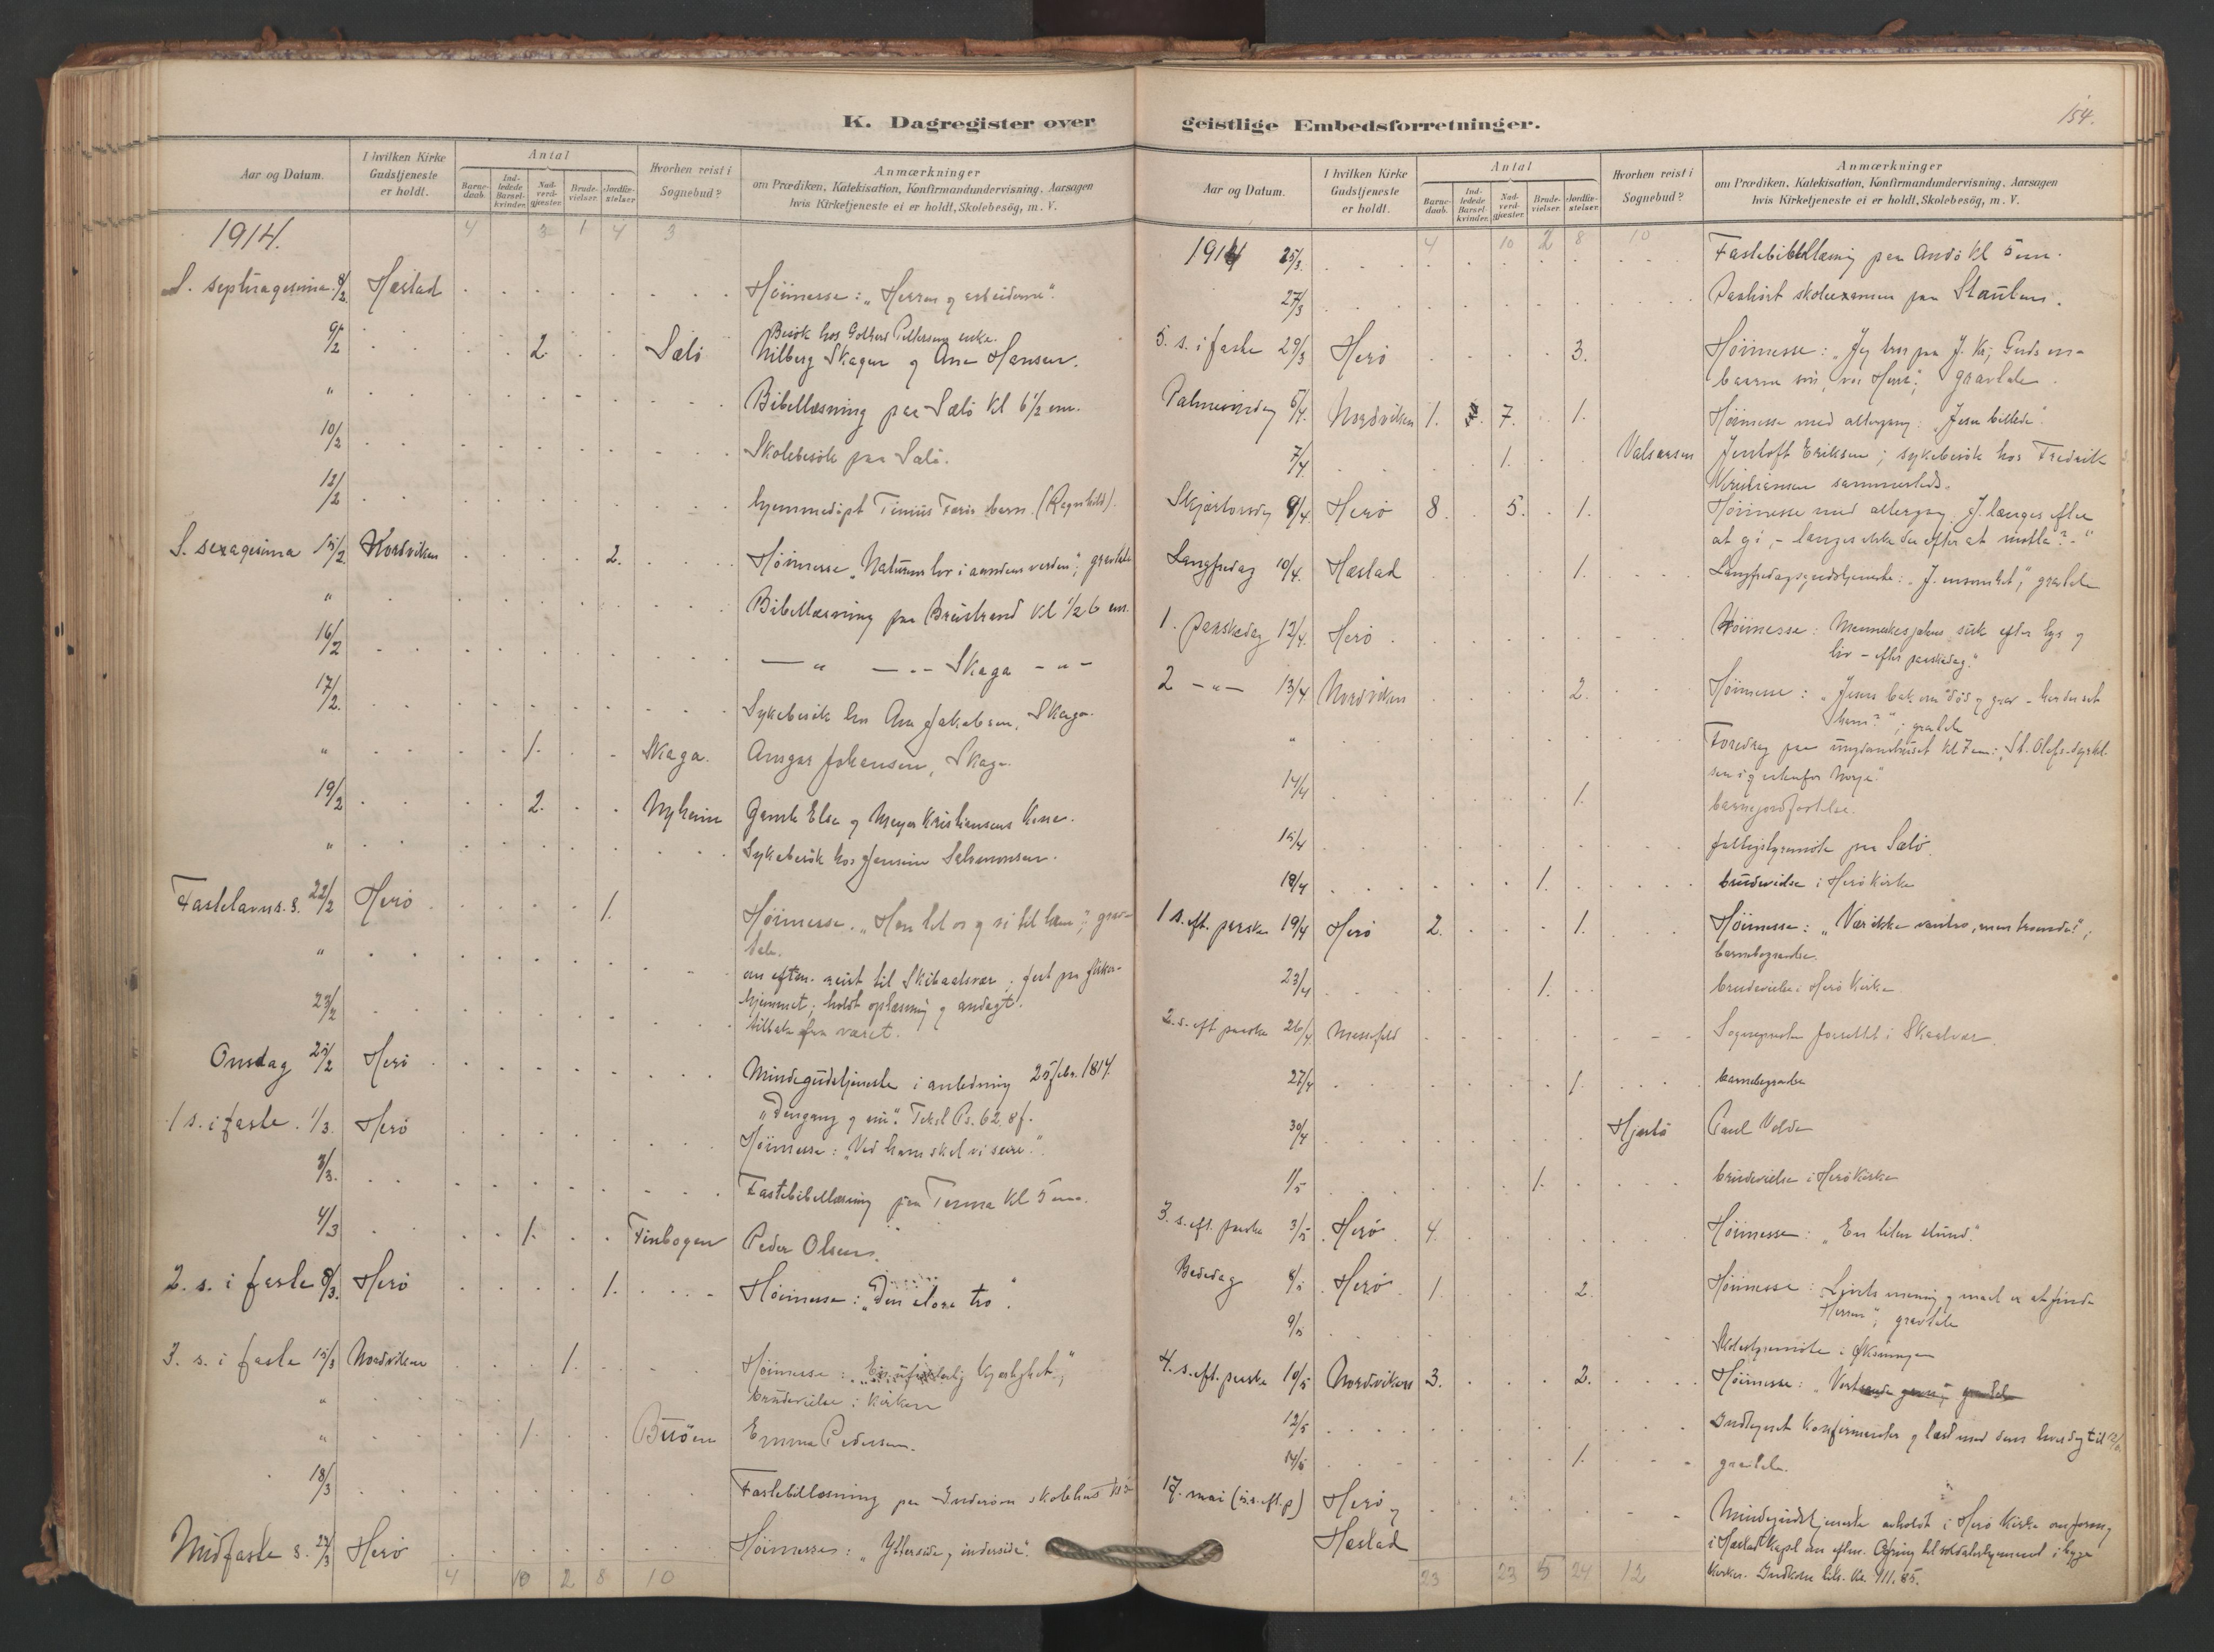 K. Dagregister over
Aar og Datum.
I hvilken Kirke Gudstjeneste er holdt.
Antal
Barne-daab.
Ind-ledede Barsel-kvinder.
Nad-verd-gjæster.
Brude-vielser.
Jordfæ-stelser
Hvorhen reist i Sognebud?
Anmærkninger
om Prædiken, Katekisation, Konfirmandundervisning, Aarsagen
hvis Kirketjeneste ei er holdt, Skolebesög, m. V.
1914. 4 3 1 4 3
S. septuagesima 8/2 Hæstad Höimesse: „Herren og arbeiderne".
9/2 2. Salö Besök hos Pettersens enke.
Skagen og Ane Hansen.
" Bibellæsning paa Salö kl 6 1/2 em.
10/2 Skolebesök paa Salö.
12/2 hjemmedöpt barn. (Ragnhild).
S. sexagesima 15/2 Nordviken 2. Höimesse „Naturens lov i aandens verden"; gravtale
" Bibellæsning paa Breistrand kl 1/2 6 em.
16/2 — " — - - Skaga - " -
17/2. Sykebesök hos Ane Jakobsen, Skaga.
" 1. Skaga. Ansgar Johansen, Skaga.
19/2 2. Nyheim Gamle Else og Meyer Kristiansens kone.
" Sykebesök hos Jensine Salomonsen.
Fastelavns s. 22/2 Herö 1. Höimesse. „Han til os og vi til ham"; grav-
tale.
" om eftm. reist til Skibaatsvær; fest paa fisker-
hjemmet; holdt oplæsning og andagt.
23/2 tilbake fra været.
Onsdag 25/2 Herö Mindegudstjeneste i anledning 25 febr. 1814.
„Dengang og nu". Tekst Ps. 62. 8 f.
1 s. i faste. 1/3. Herö Höimesse: „Ved ham skal vi seire".
3/3. Fastebibellæsning paa Tenna kl 5 em.
4/3 1. Finbogen Peder Olsen.
2. s. i faste 8/3. Herö 1. Höimesse: „Den store tro".
3. s. i faste 15/3 Nordviken 1. Höimesse: kjærlighet";
" brudevielse i kirken
" 1. Emma Pedersen.
18/3 Fastebibellæsning paa Inderöen skolehus
Midfaste s. 22/3 Herö Höimesse: „Ytterside og inderside".
4 10 2 8 10
geistlige Embedsforretninger.
154.
Aar og Datum.
I hvilken Kirke Gudstjeneste er holdt.
Antal
Barne-daab.
Ind-ledede Barsel-kvinder.
Nad-verd-gjæster.
Brude-vielser.
Jordfæ-stelser
Hvorhen reist i Sognebud?
Anmærkninger
om Prædiken, Katekisation, Konfirmandundervisning, Aarsagen
hvis Kirketjeneste ei er holdt, Skolebesög, m. V.
4 10 2 8 10
1914 25/3. Fastebibellæsning paa Andö kl 5 em.
27/3 skoleexamen paa Staulen.
5. s. i faste 29/3 Herö 3. Höimesse: „Jeg tror paa J. Kr, Guds en-
baarne sön, vor Herre"; gravtale.
Palmesöndag 5/4. Nordviken 1. 7. 1. Höimesse med altergang: „Jesu billede".
7/4 1. Valsaasen Jentoft Eriksen; sykebesök hos Fredrik
Kristiansen sammesteds.
Skjærtorsdag 9/4. Herö 8. 5. 1. Höimesse med altergang. „J. længes efter
at gi, - længes ikke du efter at motta?"
Langfredag 10/4. Hæstad 1. Langfredagsgudstjeneste: „J. ensomhet", gravtale
1. paaskedag 12/4. Herö. Höimesse: Menneskesjælens suk efter lys og
liv - efter paaskedag."
2 - " - 13/4. Nordviken 2. Höimesse: „Jesus bak om död og grav - har du set
ham?"; gravtale
" Foredrag paa ungdomshuset kl 7 em: „St. Olafs-dyrkel-
sen i og utenfor Norge".
14/4 1. barnejordfæstelse.
15/4 fattigstyremöte paa Salö.
18/4 1. brudevielse i Herö kirke
1 s. eft. paaske 19/4 Herö 2. 1. Höimesse: „Vær ikke vantro, men troende!",
barnebegravelse.
23/4 1. brudevielse i Herö kirke
2. s. eft paaske 26/4 Messefald Sognepresten forrettet i Skaalvær.
27/4 1. barnebegravelse
30/4 Hjartö Paul Valde
1/5 1. brudevielse i Herö kirke
3. s. eft. paaske 3/5 Herö 4. Höimesse: „En liten stund."
Bededag 8/5 Herö. 1. 2. Höimesse: Livets mening og maal er at finde
Herren", gravtale
9/5 Skolestyremöte i Öksningen
4. s. eft. paaske 10/5 Nordviken 3. 2. Höimesse:
12/5 Indtegnet konfirmanter og læst med dem hverdag til
14/5 1. gravtale.
17. mai (5. s. eft. p) Herö og Mindegudstjeneste avholdt i Herö kirke om form. og
Hæstad i Hæstad kapel om eftm. Ofring til soldaterhjemmet i begge
kirker. Indkom tils. kr. 111.85.
23 23 5 24 12